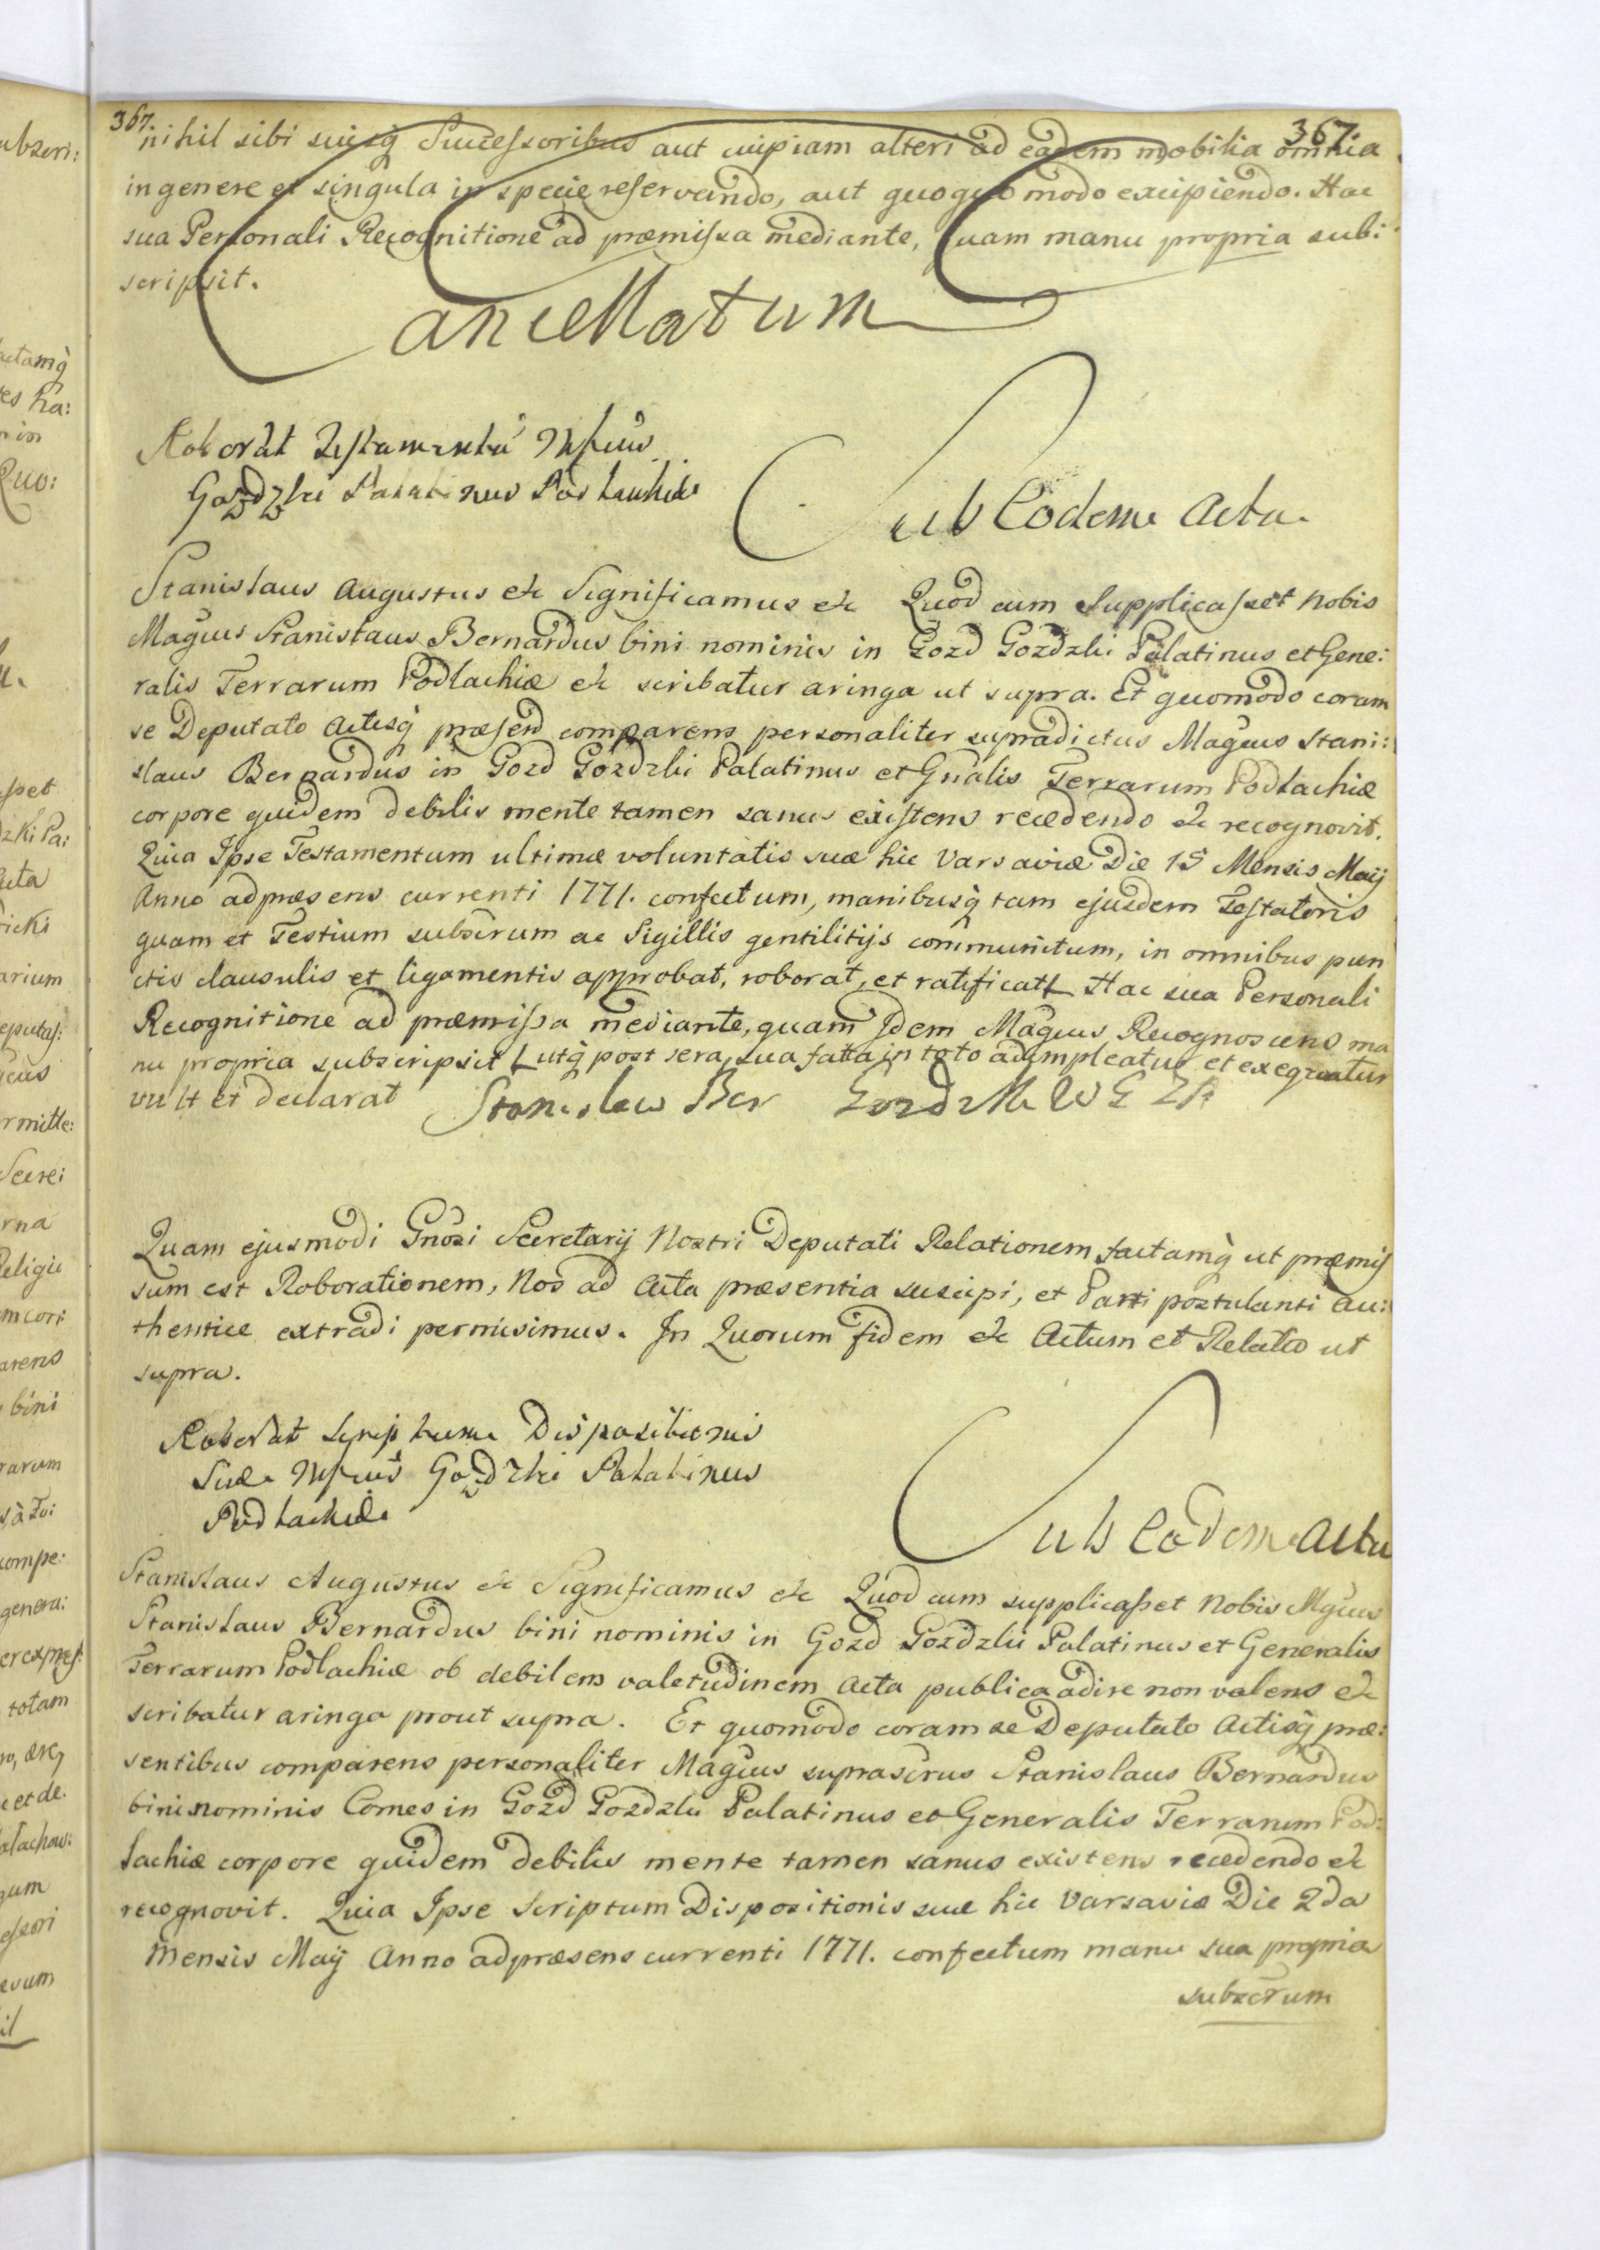 367. 367.
nihil sibi suisq̀ Successoribus aut cuipiam alteri ad eadem mobilia omnia
in genere et singula in specie reservando, aut quoquo modo excipiendo. Hac
sua Personali Recognitione ad præmissa mediante, Quam manu propria sub:
scripsit.
Cancellatum
Roborat Testamentū Mgfcus
Gozdzki Palatinus Podlachiæ
Sub Eodem Actu.
Stanislaus Augustus &c Significamus &c Quod cum Supplicasset Nobis
Magcus Stanislaus Bernardus bini nominis in Gozd Gozdzki Palatinus et Gene:
ralis Terrarum Podlachiæ &c scribatur aringa ut supra. Et quomodo coram
se Deputato Actisq̀ præsen̄ comparens personaliter supradictus Magcus Stani:
slaus Bernardus in Gozd Gozdzki Palatinus et Gnalis Terrarum Podlachiæ
corpore quidem debilis mente tamen sanus existens recedendo &c recognovit.
Quia Ipse Testamentum ultimæ voluntatis suæ hic Varsaviæ Die 15 Mensis Maij
Anno adpræsens currenti 1771. confectum, manibusq̀ tam ejusdem Testatoris
quam et Testium subscrum ac Sigillis gentilitijs communitum, in omnibus pun
ctis clausulis et ligamentis approbat, roborat, et ratificat Hac sua Personali
Recognitione ad præmissa mediante, quam Idem Magcus Recognoscens ma
nu propria subscripsit utq̀ post sera sua fata in toto adimpleatur et exequatur
vult et declarat Stanislaw Ber Gozdzki W G Z P
Quam ejusmodi Gnosi Secretarij Nostri Deputati Relationem factamq̀ ut præmis
sum est Roborationem, Nos ad Acta præsentia suscipi, et Parti postulanti au:
thentice extradi permisimus. In Quorum fidem &c Actum et Relatio ut
supra.
Roborat Scriptum Dispositionis
Suæ Mgfcus Gozdzki Palatinus
Podlachiæ
Sub Eodem Actu
Stanislaus Augustus &c Significamus &c Quod cum supplicasset Nobis Mgcus
Stanislaus Bernardus bini nominis in Gozd Gozdzki Palatinus et Generalis
Terrarum Podlachiæ ob debilem valetudinem Acta publica adire non valens &c
scribatur aringa prout supra. Et quomodo coram se Deputato Actisq̀ præ:
sentibus comparens personaliter Magcus suprascrus Stanislaus Bernardus
bini nominis Comes in Gozd Gozdzki Palatinus et Generalis Terrarum Pod:
lachiæ corpore quidem debilis mente tamen sanus existens recedendo &c
recognovit. Quia Ipse Scriptum Dispositionis suæ hic Varsaviæ Die 2da
Mensis Maij Anno adpræsens currenti 1771. confectum manu sua propria
subscrum